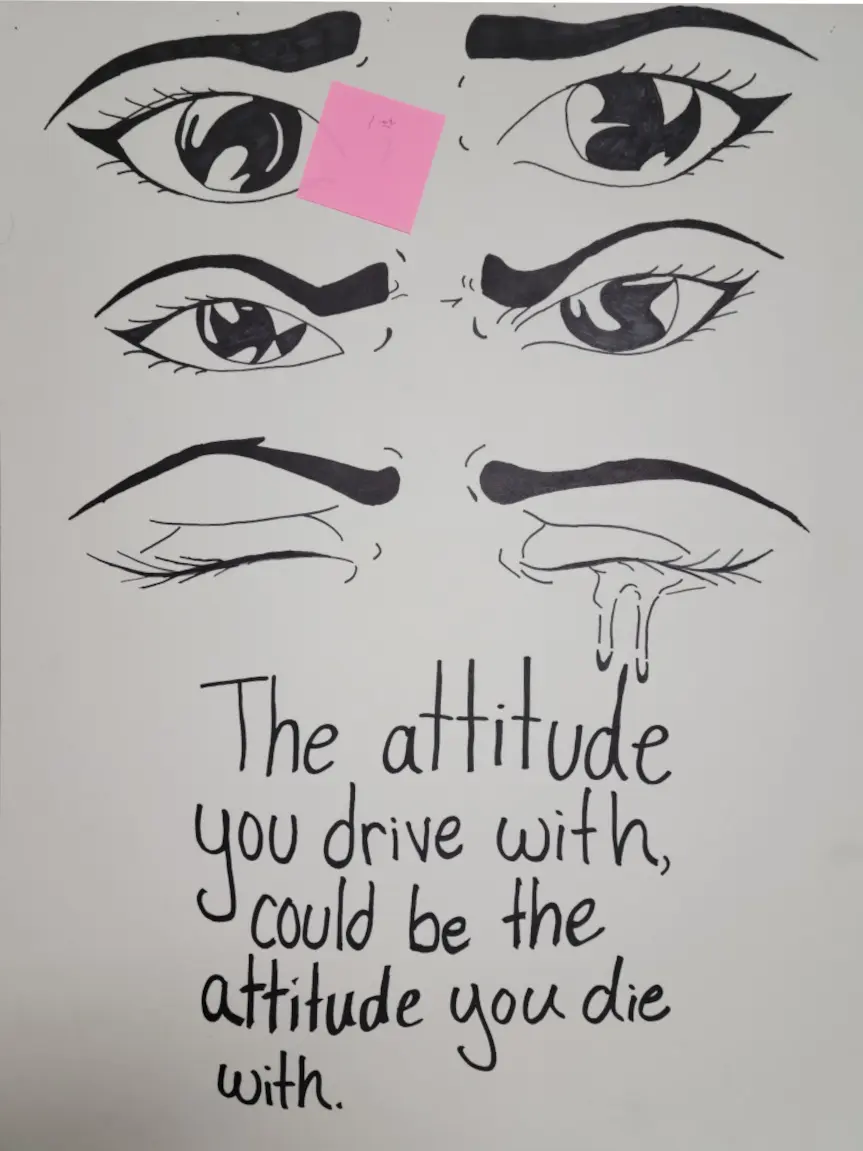 1st
The attitude
you drive with,
could be the
attitude you die
with.